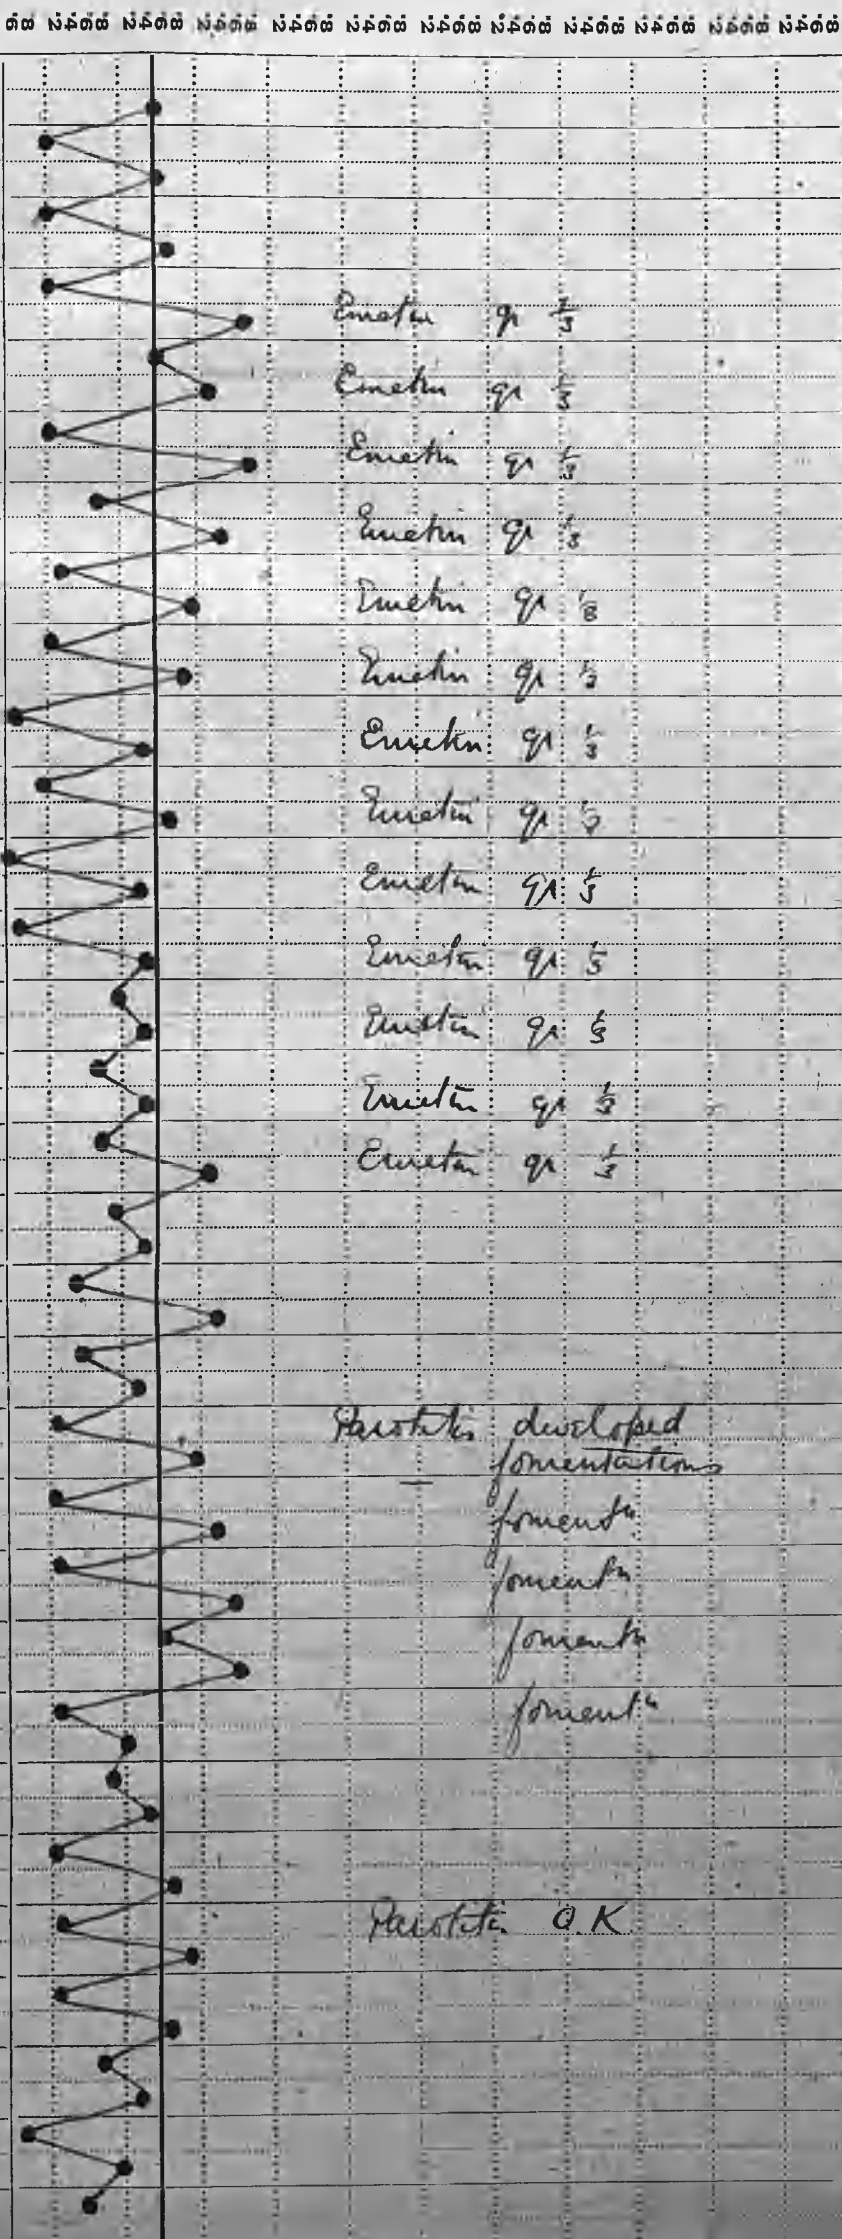 68 2468 2468 2468 2468 2468 2468 2468 2468 2468 2468 2468
Emetin gr 1/3
Emetin gr 1/3
Emetin gr 1/3
Emetin gr 1/3
Emetin gr 1/3
Emetin gr 1/3
Emetin gr 1/3
Emetin gr 1/3
Emetin gr 1/3
Emetin gr 1/3
Emetin gr 1/3
Emetin gr 1/3
Emetin gr 1/3
Parotitis developed
fomentations
fomentn
fomentn
fomentn
fomentn
Parotitis O.K